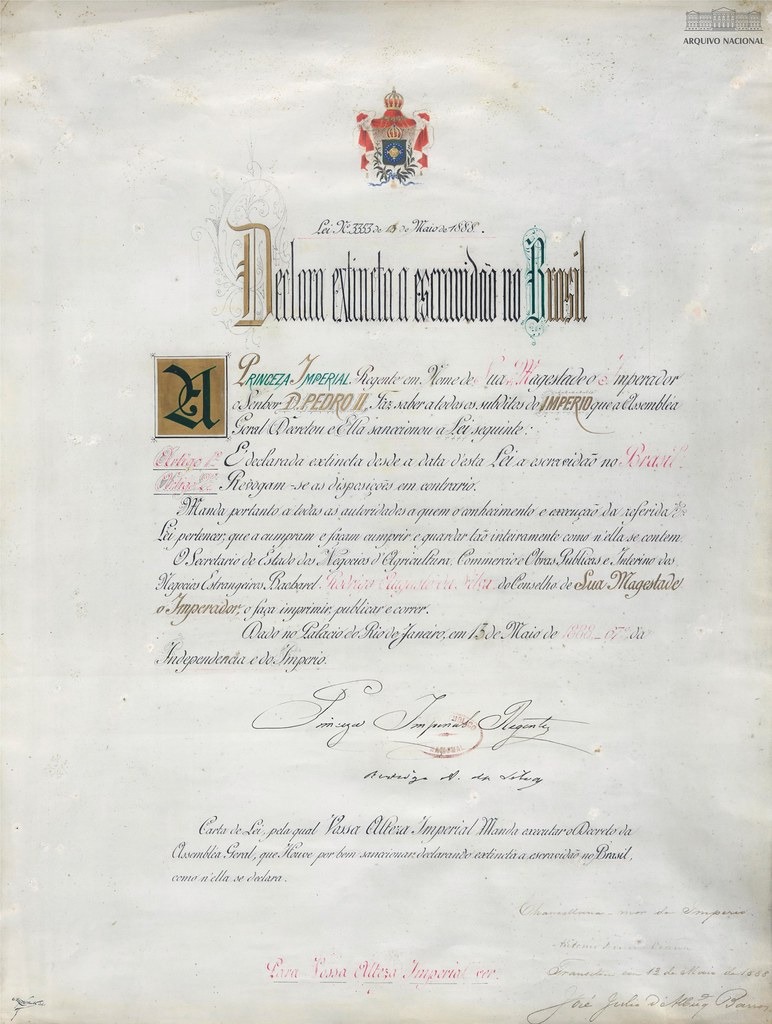 ARQUIVO NACIONAL
Lei Nº 3353 de 13 de Maio de 1888.
Declara extincta a escravidão no Brasil
A PRINCEZA IMPERIAL Regente em Nome de Sua Magestade o Imperador
o Senhor D. PEDRO II, Faz saber a todos os subditos do IMPERIO que a Assembléa
Geral Decretou e Ella sanccionou a Lei seguinte:
Artigo 1º É declarada extincta desde a data d'esta Lei a escravidão no Brasil.
Artigo 2º Revogam-se as disposições em contrario.
Manda portanto a todas as autoridades a quem o conhecimento e execução da referida
Lei pertencer, que a cumpram e façam cumprir e guardar tão inteiramente como n'ella se contem.
O Secretario de Estado dos Negocios d'Agricultura, Commercio e Obras Publicas e Interino dos
Negocios Estrangeiros Bacharel Rodrigo Augusto da Silva, do Conselho de Sua Magestade
o Imperador, o faça imprimir, publicar e correr.
Dado no Palacio do Rio de Janeiro, em 13 de Maio de 1888 – 67º da
Independencia e do Imperio.
Princeza Imperial Regente
Rodrigo A. da Silva
Carta de Lei, pela qual Vossa Alteza Imperial Manda executar o Decreto da
Assembléa Geral, que Houve por bem sanccionar, declarando extincta a escravidão no Brasil,
como n'ella se declara.
Chancellaria-mor do Imperio.
Para Vossa Alteza Imperial ver.
Transitou em 13 de Maio de 1888
José Julio d'Albuqº Barros